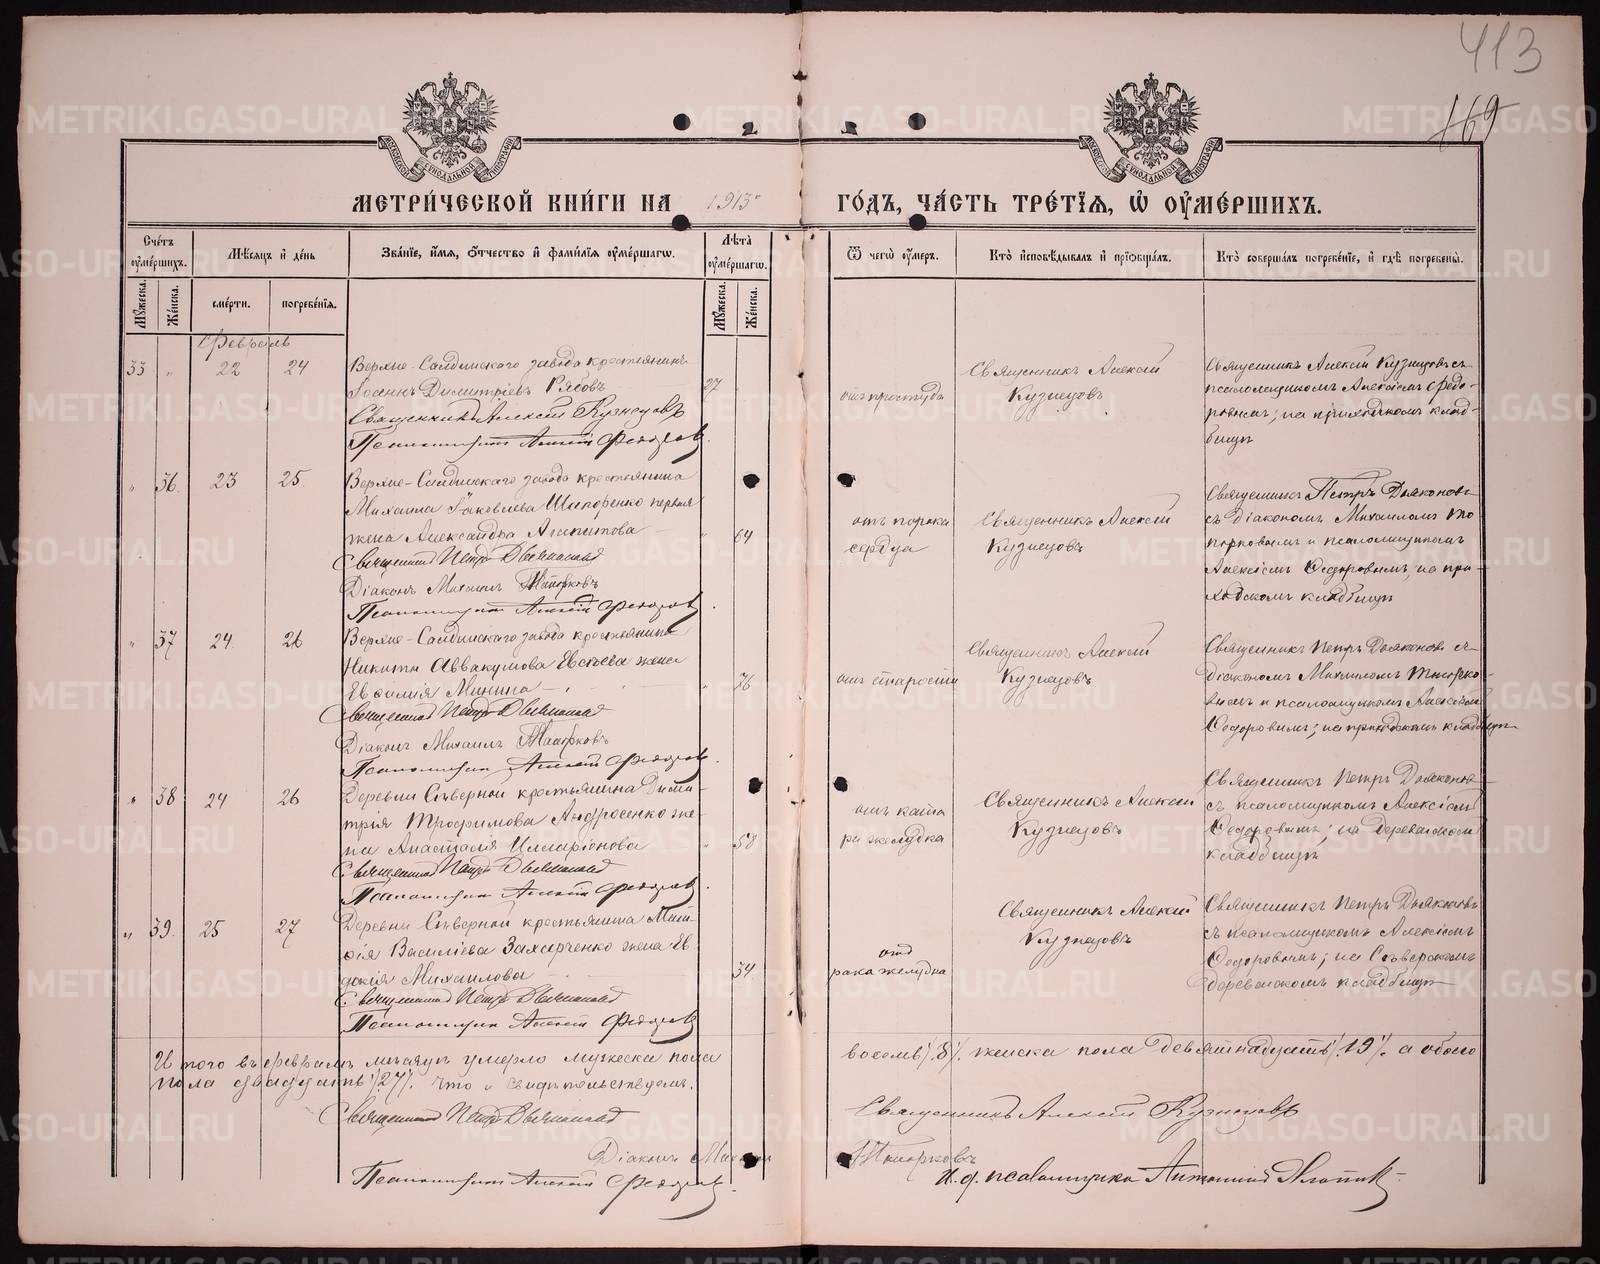 413
169
МЕТРИ́ЧЕСКОЙ КНИ́ГИ НА 1913 ГО́ДЪ, ЧА́СТЬ ТРЕ́ТІЯ, Ѡ ОУМЕ́РШИХЪ.
Сче́тъ оуме́ршихъ.
Мѣсяцъ и де́нь
Зва́ніе, и́мя, о́тчество и фами́лія оуме́ршагѡ.
Лѣта̀ оуме́ршагѡ.
Ѿ чегѡ̀ оу́меръ.
Кто̀ исповѣ́дывалъ и пріѡбща́лъ.
Кто̀ соверша́лъ погребе́ніе, и гдѣ̀ погребены̀.
Мꙋ́жеска.
Же́нска.
сме́рти.
погребе́нія.
Мꙋ́жеска.
Же́нска.
Февраль
33 " 22 24 Верхне-Салдинскаго завода крестьянинъ
Іоаннъ Димитріевъ Рябовъ 27
Священникъ Алексій Кузнецовъ
Псаломщикъ Алексій Федоровъ.
отъ простуды
Священникъ Алексій
Кузнецовъ
Священникъ Алексій Кузнецовъ съ
псаломщикомъ Алексіемъ Федо-
ровымъ; на приходскомъ клад-
бищѣ
" 36. 23 25 Верхне-Салдинскаго завода крестьянина
Михаила Іаковлева Шапоренко первая
жена Александра Агапитова " 64
Священникъ Петръ Дьяконовъ
Діаконъ Михаилъ Топорковъ
Псаломщикъ Алексій Федоровъ.
отъ порока
сердца
Священникъ Алексій
Кузнецовъ
Священникъ Петръ Дьяконовъ
съ діакономъ Михаиломъ То-
порковымъ и псаломщикомъ
Алексіемъ Ѳедоровымъ, на при-
ходскомъ кладбищѣ
" 37 24. 26 Верхне-Салдинскаго завода крестьянина
Никиты Аввакумова Евсѣева жена
Евфимія Минина " 76
Священникъ Петръ Дьяконовъ
Діаконъ Михаилъ Топорковъ
Псаломщикъ Алексій Федоровъ.
отъ старости
Священникъ Алексій
Кузнецовъ
Священникъ Петръ Дьяконовъ съ
діакономъ Михаиломъ Топорко-
вымъ и псаломщикомъ Алексіемъ
Ѳедоровымъ; на приходскомъ кладбищѣ
" 38 24 26 Деревни Сѣверной крестьянина Дими-
трія Трофимова Андросенко же-
на Анастасія Илларіонова " 58
Священникъ Петръ Дьяконовъ
Псаломщикъ Алексій Федоровъ.
отъ ката
ра желудка
Священникъ Алексій
Кузнецовъ
Священникъ Петръ Дьяконовъ
съ псаломщикомъ Алексіемъ
Ѳедоровымъ; на деревенском
кладбищѣ
" 39. 25 27 Деревни Сѣверной крестьянина
Василіева Захарченко жена Ев
докія Михаилова 34
Священникъ Петръ Дьяконовъ
Псаломщикъ Алексій Федоровъ
отъ
рака желудка
Священникъ Алексій
Кузнецовъ
Священникъ Петръ Дьяконовъ
съ псаломщикомъ Алексіемъ
Ѳедоровымъ; на Сѣверскомъ
деревенскомъ кладбищѣ
Итого въ февралѣ мѣсяцѣ умерло мужеска пола восемь /.8/. женска пола девятнадцать /.19/. а обоего
пола двадцать /.27/. что и свидѣтельствуемъ.
Священникъ Петръ Дьяконовъ
Священникъ Алексій Кузнецовъ
Діаконъ Михаилъ Топорковъ
Псаломщикъ Алексій Федоровъ.
И. д. псаломщика Антоній